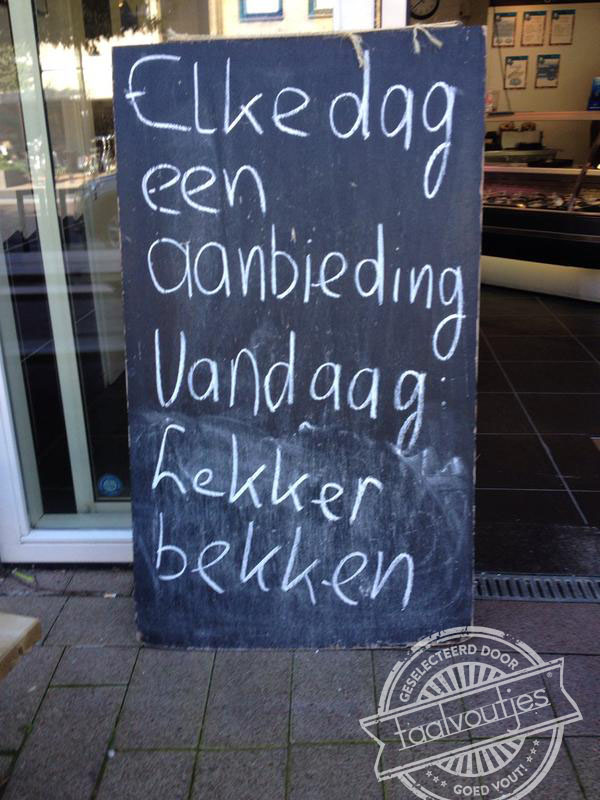 Elke dag
een
aanbieding
Vandaag:
Lekker
bekken
GESELECTEERD DOOR
taalvoutjes®
GOED VOUT!